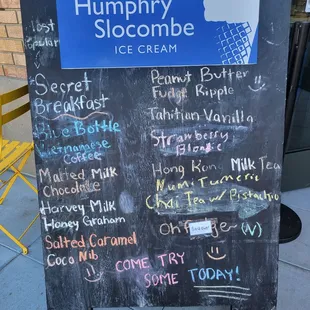 Humphry
Slocombe
ICE CREAM
Most
Popular
Secret
Breakfast
Blue Bottle
Vietnamese
Coffee
Malted Milk
Chocolate
Harvey Milk
Honey Graham
Salted Caramel
Coco Nib
Peanut Butter
Fudge Ripple
Tahitian Vanilla
Strawberry
Blondie
Hong Kong Milk Tea
Numi Turmeric
Chai Tea w/ Pistachio
(V)
COME TRY
SOME TODAY!